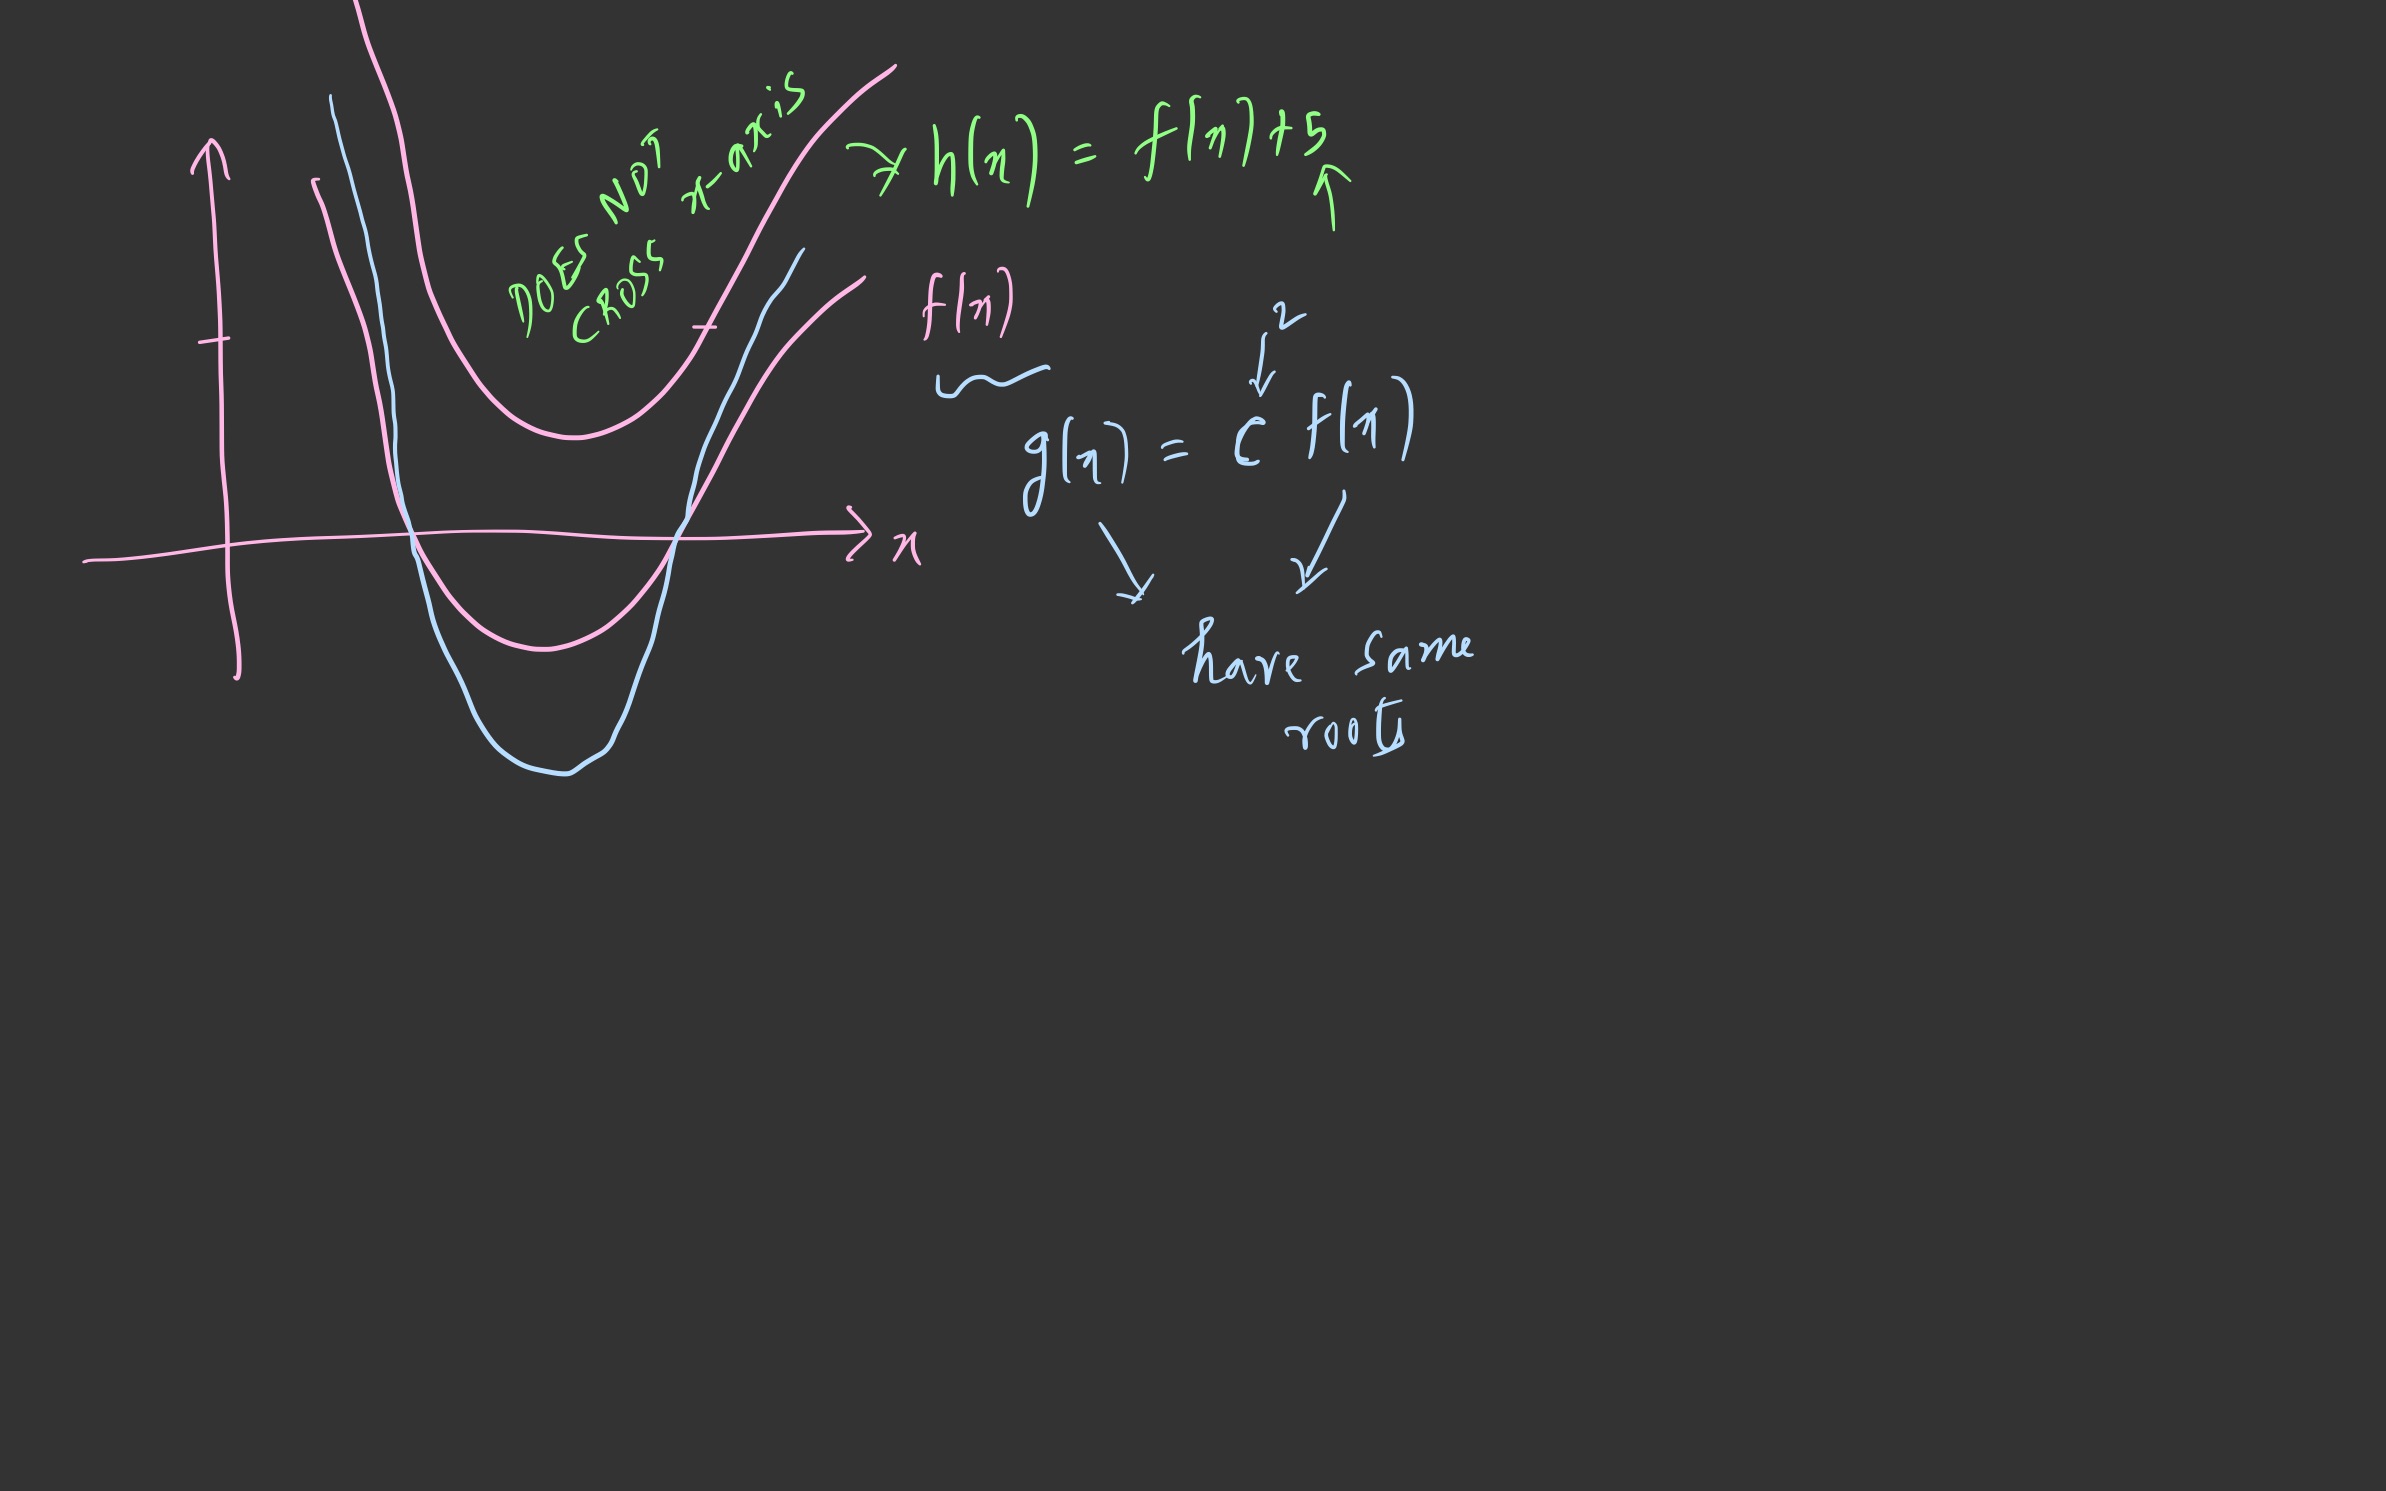 DOES NOT
CROSS x-axis
h(x) = f(x)+5
f(x)
2
g(x) = c f(x)
x
have same
roots